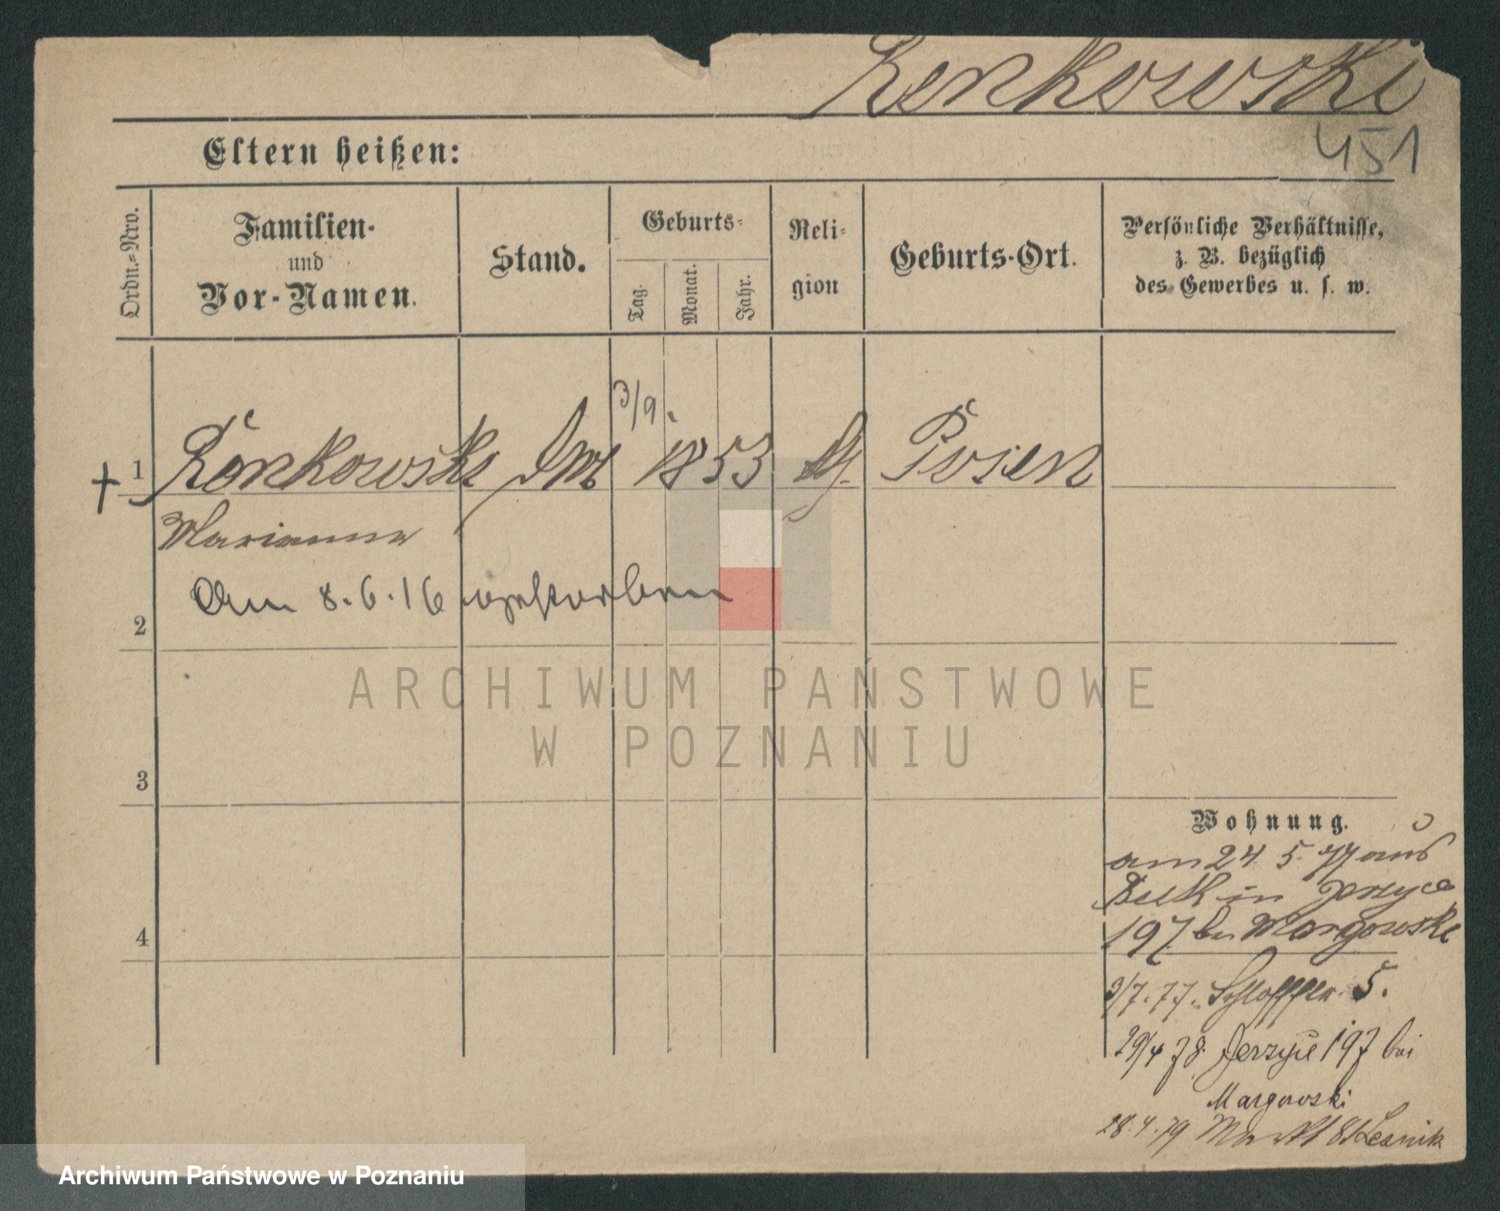 Renkowski
451
Eltern heißen:
Ordn.-Nro.
Familien-
und
Vor-Namen.
Stand.
Geburts-
Tag.
Monat.
Jahr.
Reli-
gion
Geburts-Ort.
Persönliche Verhältnisse,
z. B. bezüglich
des Gewerbes u. s. w.
3/9.
† 1 Renkowski 1853 Posen
Marianna
Am 8.6.16 gestorben
2
3
4
ARCHIWUM PAŃSTWOWE
W POZNANIU
Wohnung.
am 24. 5. 77 aus
Buk in Jerzyce
197 bei Margowski
3/7.77. 5.
29/4 78 Jerzyce 197 bei
Margowski
28.4.79 Markt
Archiwum Państwowe w Poznaniu